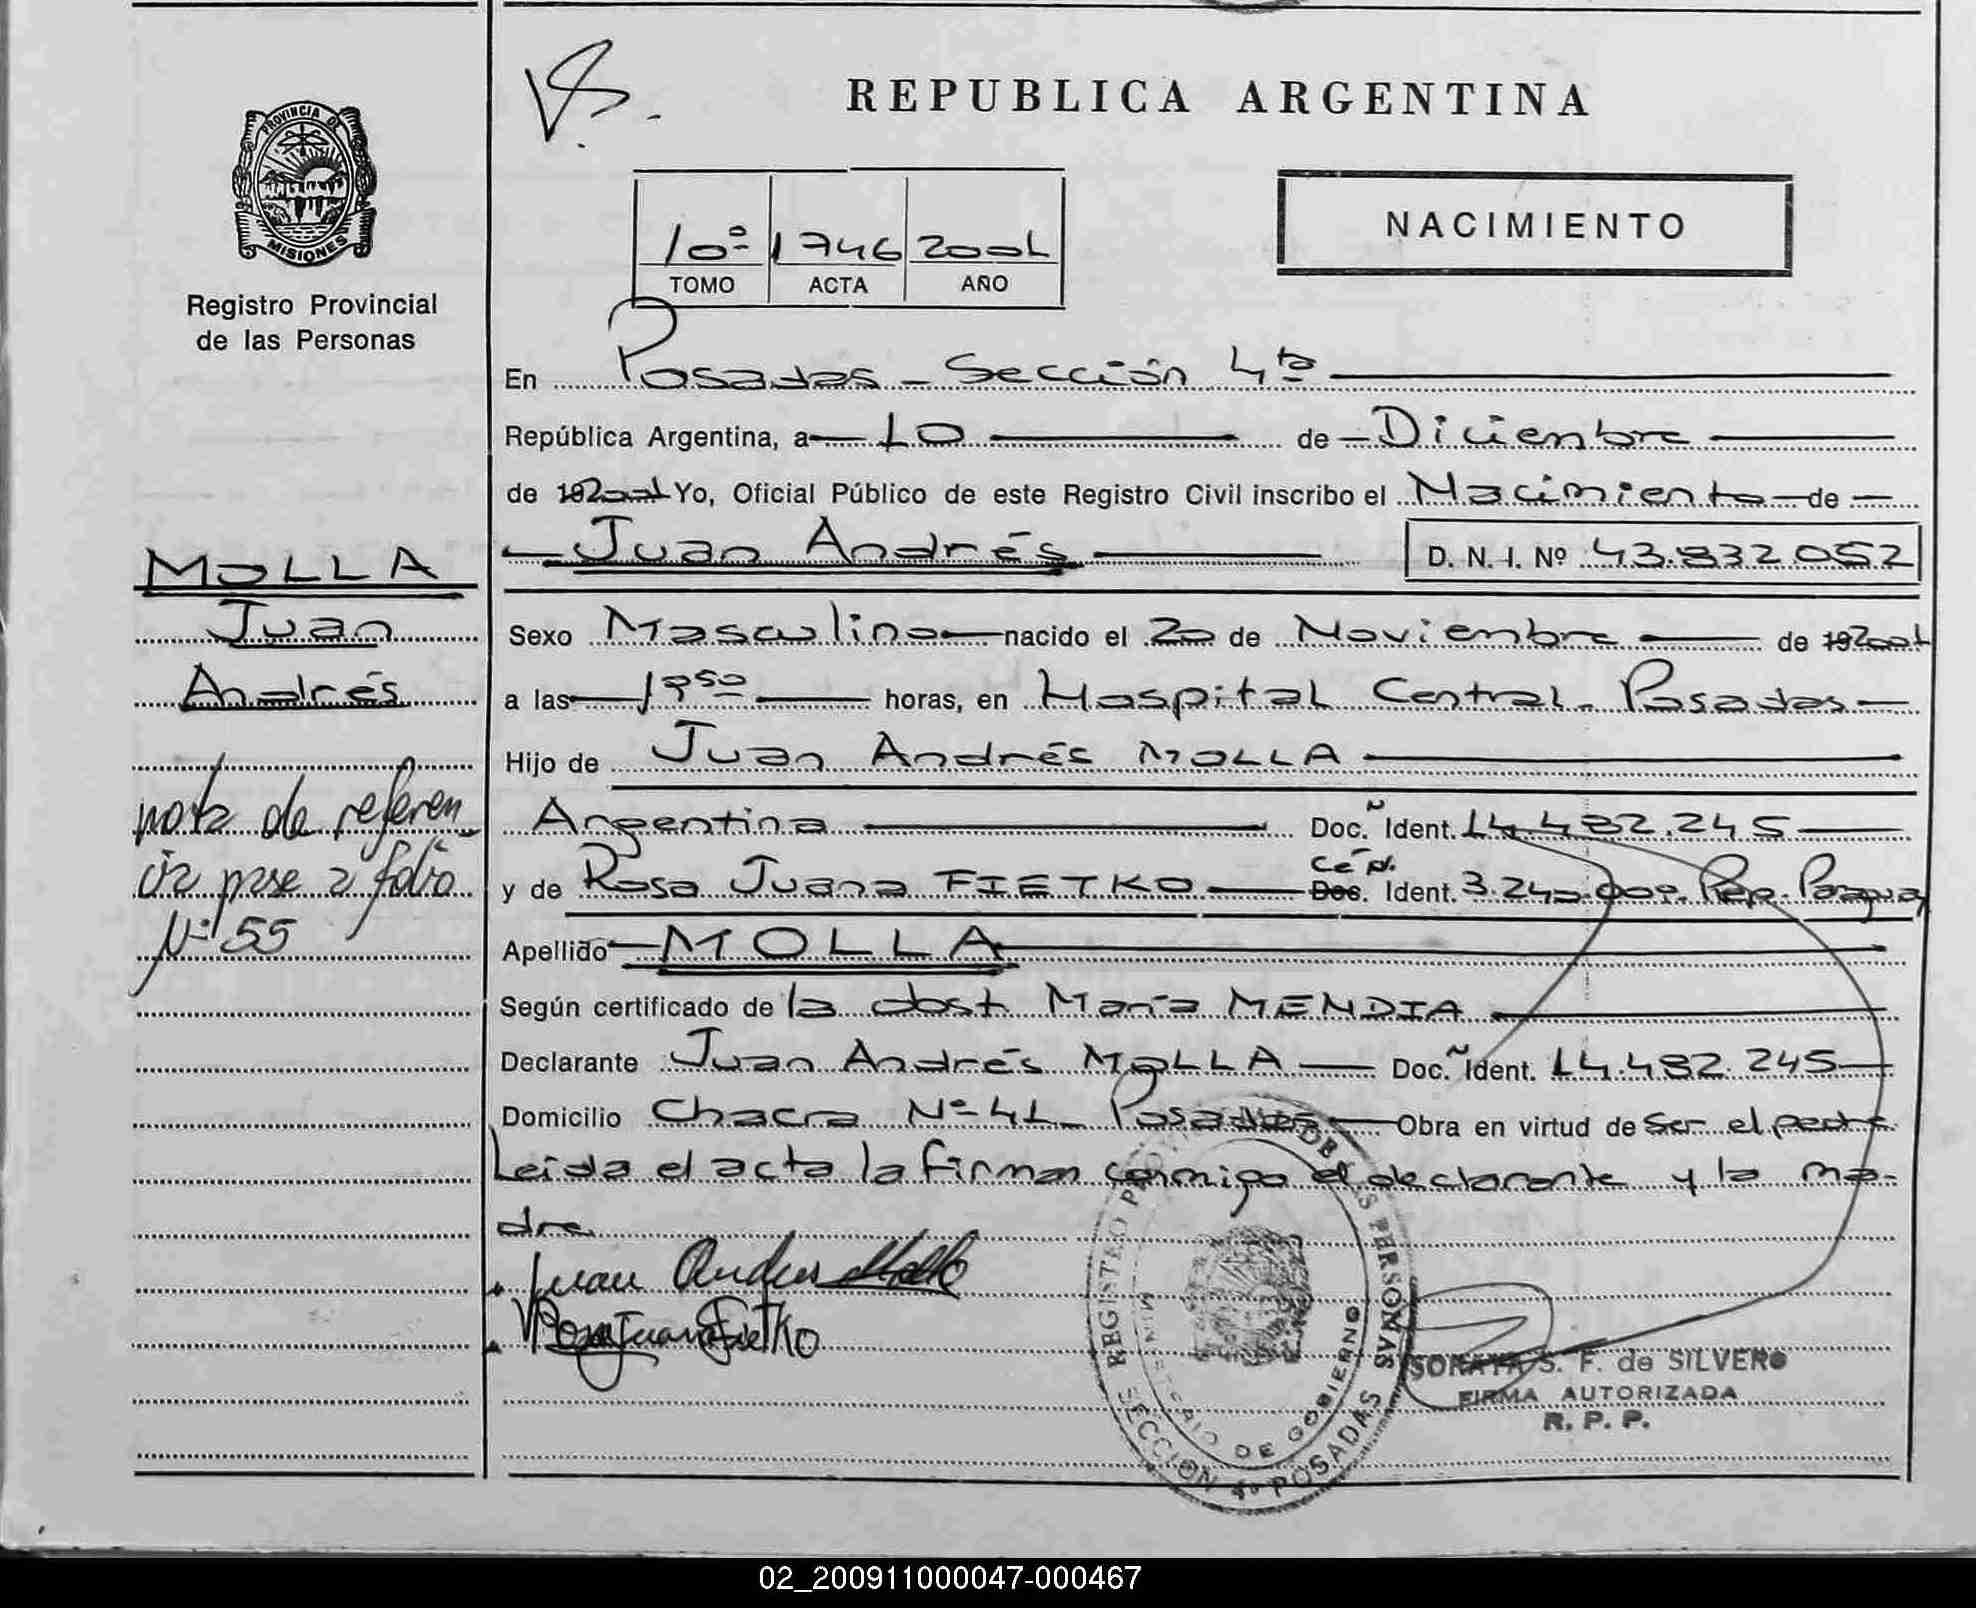 PROVINCIA DE
MISIONES
Registro Provincial
de las Personas
MOLLA
Juan
Andrés
nota de referen
cia pase a folio
Nº 55
REPUBLICA ARGENTINA
NACIMIENTO
10º 1746 2001
TOMO ACTA AÑO
En Posadas - Sección 4ta
República Argentina, a 10 de Diciembre
de 192001 Yo, Oficial Público de este Registro Civil inscribo el Nacimiento de
Juan Andrés D. N. I. Nº 43.832.052
Sexo Masculino nacido el 20 de Noviembre de 192001
a las 1950 horas, en Hospital Central - Posadas
Hijo de Juan Andrés MOLLA
Argentina Doc. Ident. 14.482.245
y de Rosa Juana FIETKO Doc. Ident. 3.240.009. Rep. Paraguay
Apellido MOLLA
Según certificado de la obst. María MENDIA
Declarante Juan Andrés MOLLA Doc. Ident. 14.482.245
Domicilio Chacra Nº 41 - Posadas Obra en virtud de Ser el padre
Leída el acta la firman conmigo el declarante y la ma-
dre
Juan Andres Molla
Rosa Juana Fietko
REGISTRO PROVINCIAL DE LAS PERSONAS
MINISTERIO DE GOBIERNO
SECCION 4º POSADAS
SORAYA S. F. de SILVERO
FIRMA AUTORIZADA
R. P. P.
02_200911000047-000467